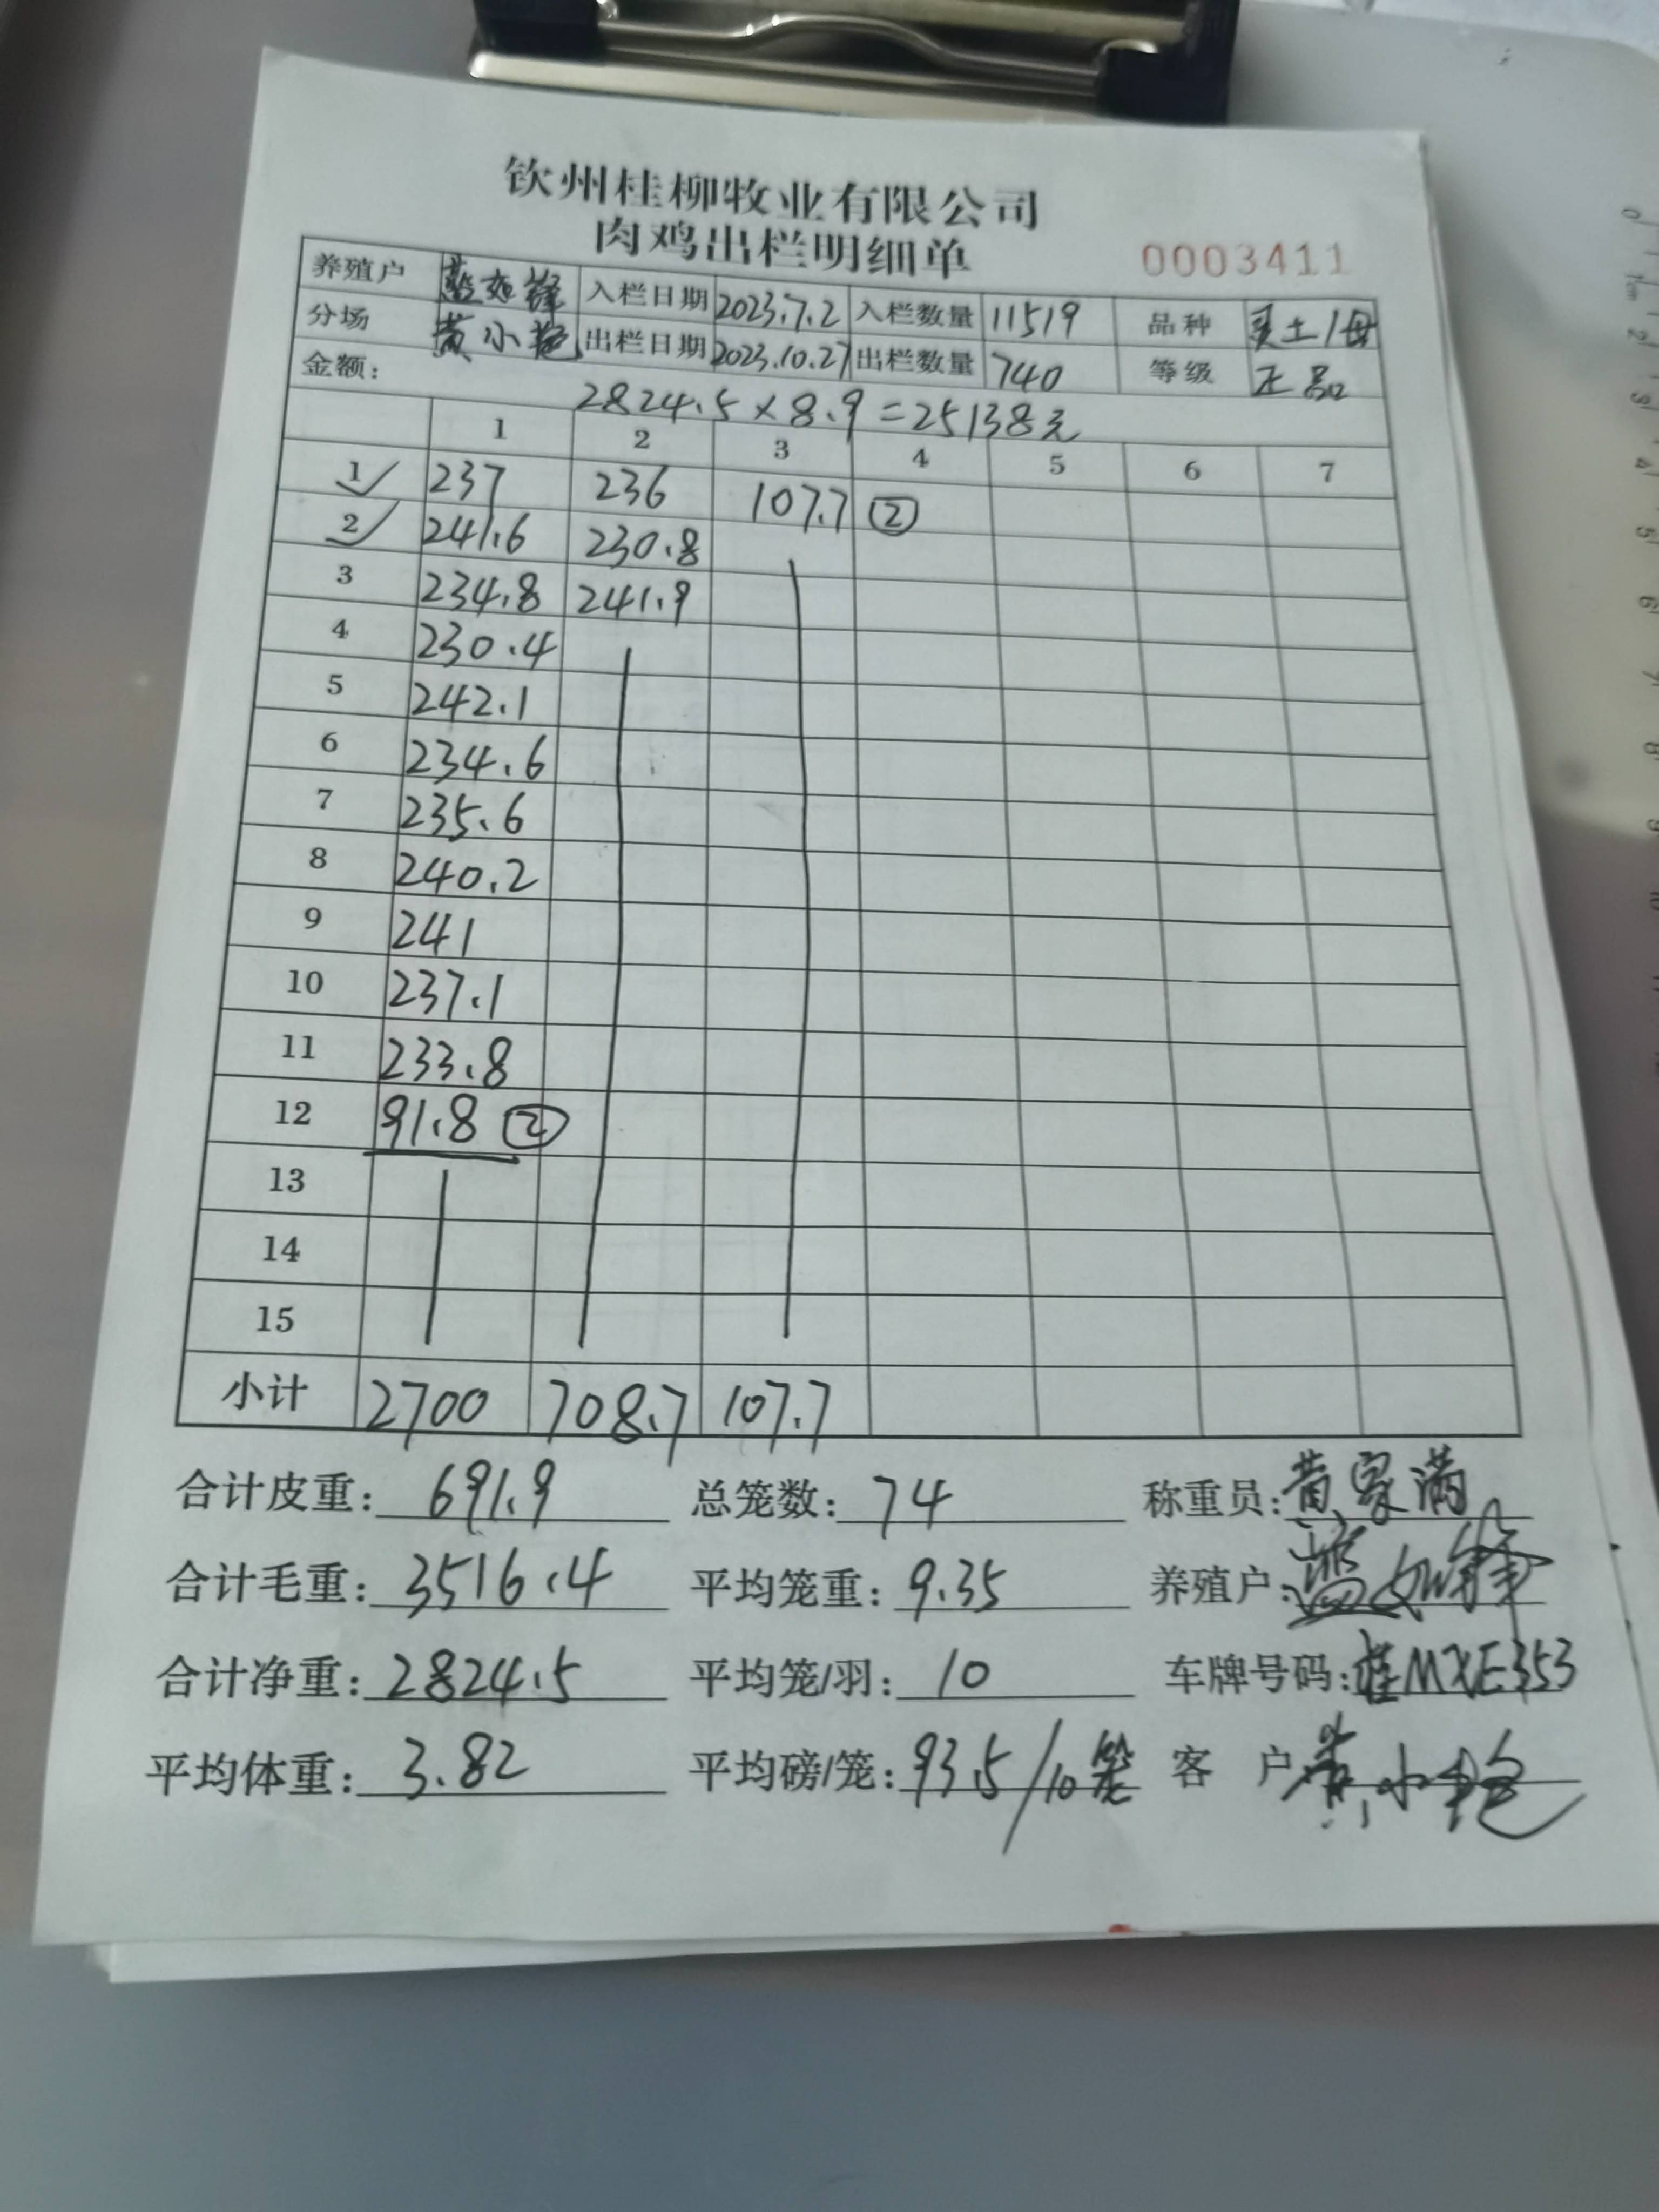 钦州桂柳牧业有限公司
肉鸡出栏明细单
0003411
养殖户 蓝如锋 入栏日期 2023.7.2 入栏数量 11519 品种 土1母
分场 黄小艳 出栏日期 2023.10.27 出栏数量 740 等级 正品
金额: 2824.5×8.9=25138元
1 2 3 4 5 6 7
1 237 236 107.7 ②
2 241.6 230.8
3 234.8 241.9
4 230.4
5 242.1
6 234.6
7 235.6
8 240.2
9 241
10 237.1
11 233.8
12 91.8 ②
13
14
15
小计 2700 708.7 107.7
合计皮重: 691.9 总笼数: 74 称重员: 黄家满
合计毛重: 3516.4 平均笼重: 9.35 养殖户: 蓝如锋
合计净重: 2824.5 平均笼/羽: 10 车牌号码: 桂MXE353
平均体重: 3.82 平均磅/笼: 93.5/10笼 客 户 黄小艳